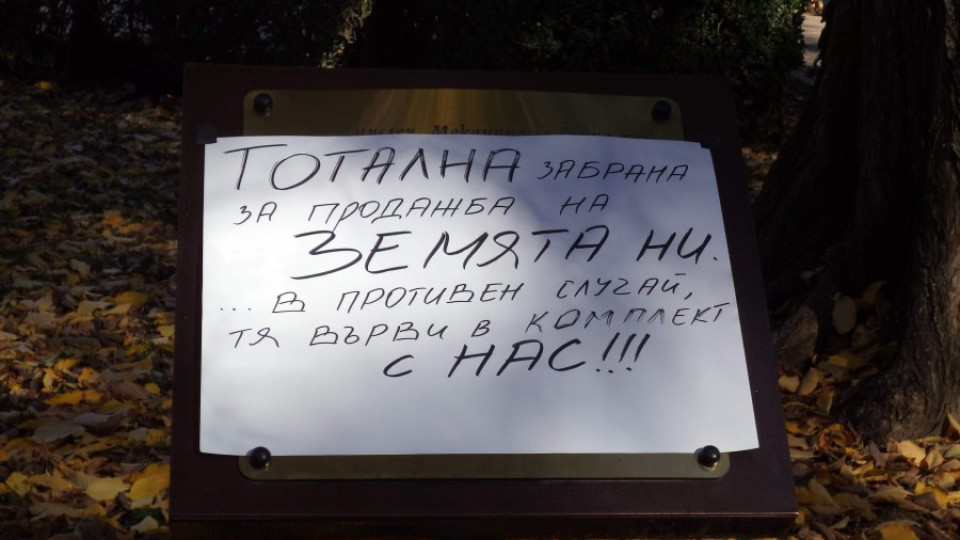 ТОТАЛНА ЗАБРАНА
ЗА ПРОДАЖБА НА
ЗЕМЯТА НИ.
... В ПРОТИВЕН СЛУЧАЙ,
ТЯ ВЪРВИ В КОМПЛЕКТ
С НАС!!!